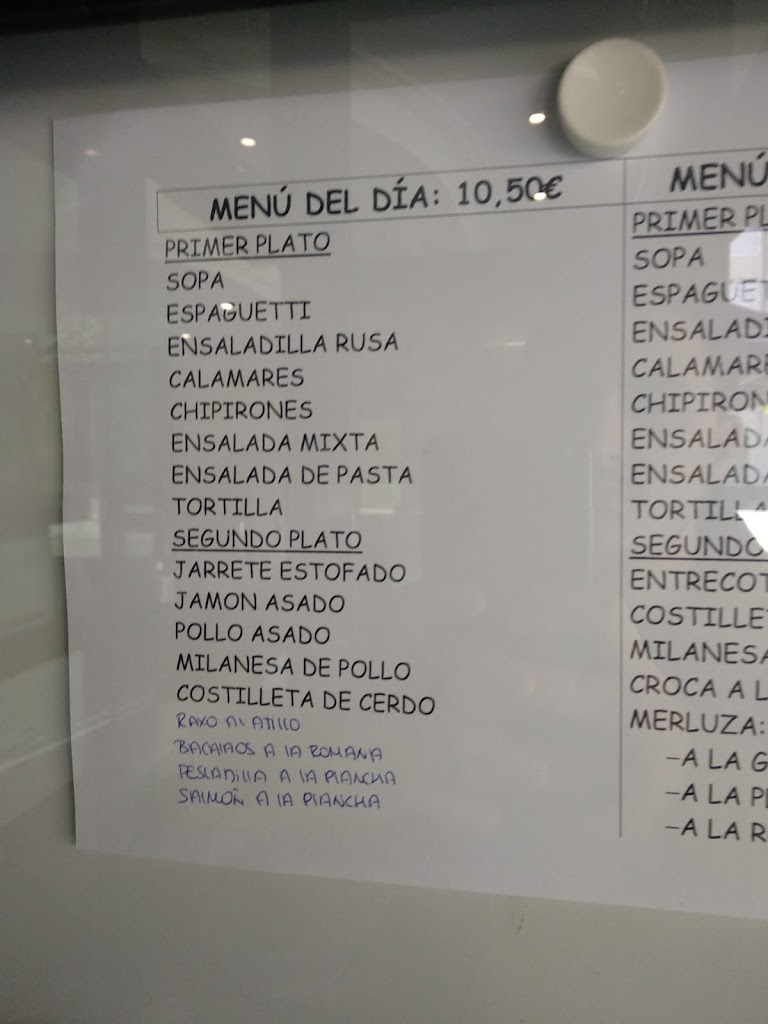 MENÚ DEL DÍA: 10,50€
PRIMER PLATO
SOPA
ESPAGUETTI
ENSALADILLA RUSA
CALAMARES
CHIPIRONES
ENSALADA MIXTA
ENSALADA DE PASTA
TORTILLA
SEGUNDO PLATO
JARRETE ESTOFADO
JAMON ASADO
POLLO ASADO
MILANESA DE POLLO
COSTILLETA DE CERDO
RAXO AL AJILLO
BACALAOS A LA ROMANA
PESCADILLA A LA PLANCHA
SALMÓN A LA PLANCHA
MENÚ
PRIMER PL
SOPA
ESPAGUET
ENSALADI
CALAMARE
CHIPIRON
ENSALADA
ENSALADA
TORTILLA
SEGUNDO
ENTRECOT
COSTILLET
MILANESA
CROCA A L
MERLUZA:
-A LA G
-A LA P
-A LA R